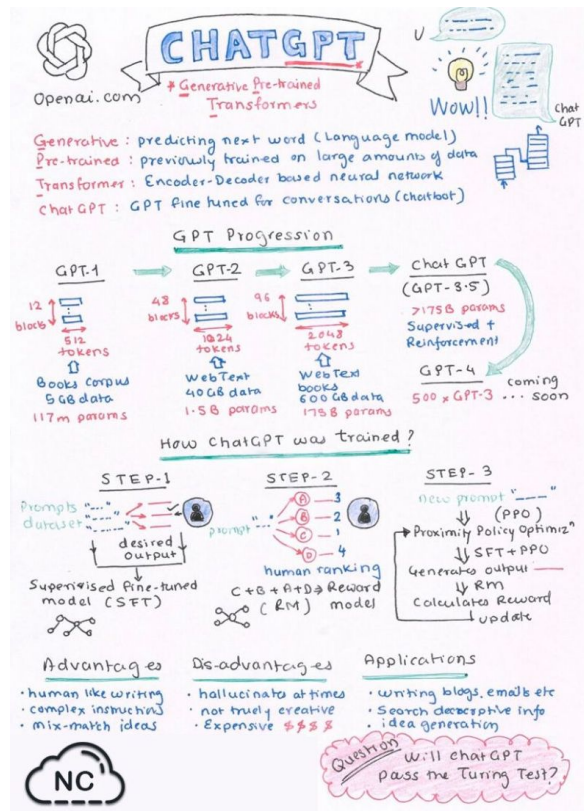 CHATGPT
Openai.com
* Generative Pre-trained
Transformers
U
Wow!!
Chat
GPT
Generative : predicting next word (Language model)
Pre-trained : previously trained on large amounts of data
Transformer : Encoder-Decoder based neural network
Chat GPT : GPT fine tuned for conversations (chatbot)
GPT Progression
GPT-1
12
blocks
512
tokens
Books Corpus
5 GB data
117m params
GPT-2
48
blocks
1024
tokens
WebText
40 GB data
1.5 B params
GPT-3
96
blocks
2048
tokens
WebText
books
600 GB data
175B params
Chat GPT
(GPT-3.5)
>175B params
Supervised +
Reinforcement
GPT-4
500 x GPT-3 ... coming
soon
How ChatGPT was trained?
STEP-1
Prompts
dataset
desired
output
Supervised fine-tuned
model (SFT)
STEP-2
prompt
A 3
B 2
C 1
D 4
human ranking
C+B+A+D → Reward
(RM) model
STEP-3
new prompt
(PPO)
Proximity Policy Optimizⁿ
SFT + PPO
Generates output
RM
Calculates Reward
update
Advantages
• human like writing
• complex instructins
• mix-match ideas
Dis-advantages
• hallucinates at times
• not truely creative
• Expensive $$$$
Applications
• writing blogs, emails etc
• Search descriptive info
• idea generation
NC
Question
Will chatGPT
pass the Turing Test?